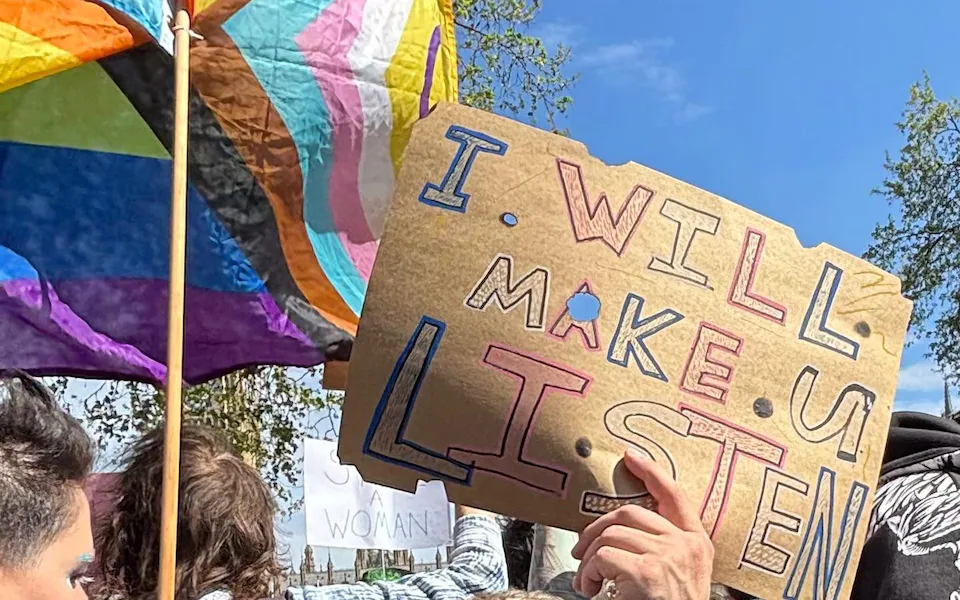 I WILL
MAKE U
LISTEN
A
WOMAN